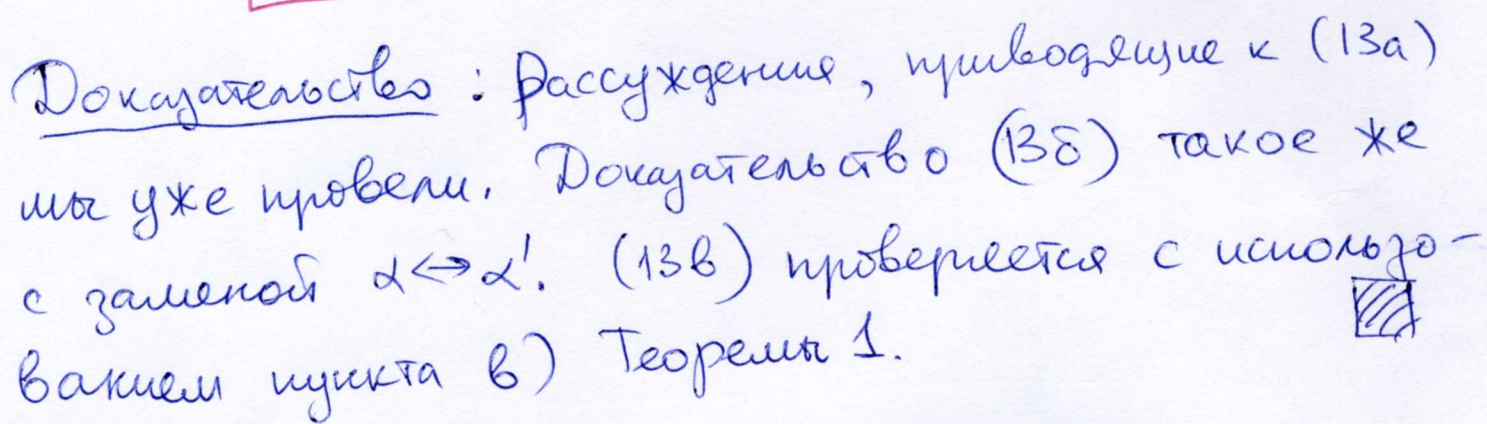 Доказательство: Рассуждения, приводящие к (13а)
мы уже провели. Доказательство (13б) такое же
с заменой α↔α'. (13в) проверяется с использо-
ванием пункта в) Теоремы 1.